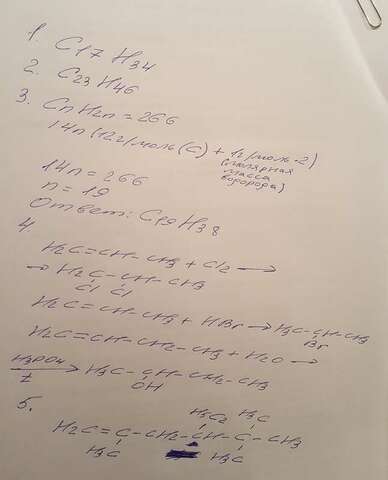 1. C17H34
2. C23H46
3. CnH2n = 266
14n (12г/моль(C) + 1г/моль·2)
(молярная
масса
водорода)
14n = 266
n = 19
Ответ: C19H38
4.
H2C=CH-CH3 + Cl2 →
→ H2C-CH-CH3
Cl Cl
H2C=CH-CH3 + HBr → H3C-CH-CH3
Br
H2C=CH-CH2-CH3 + H2O →
H3PO4
t
→ H3C-CH-CH2-CH3
OH
5.
H5C2 H3C
H2C=C-CH2-CH-C-CH3
H3C H3C